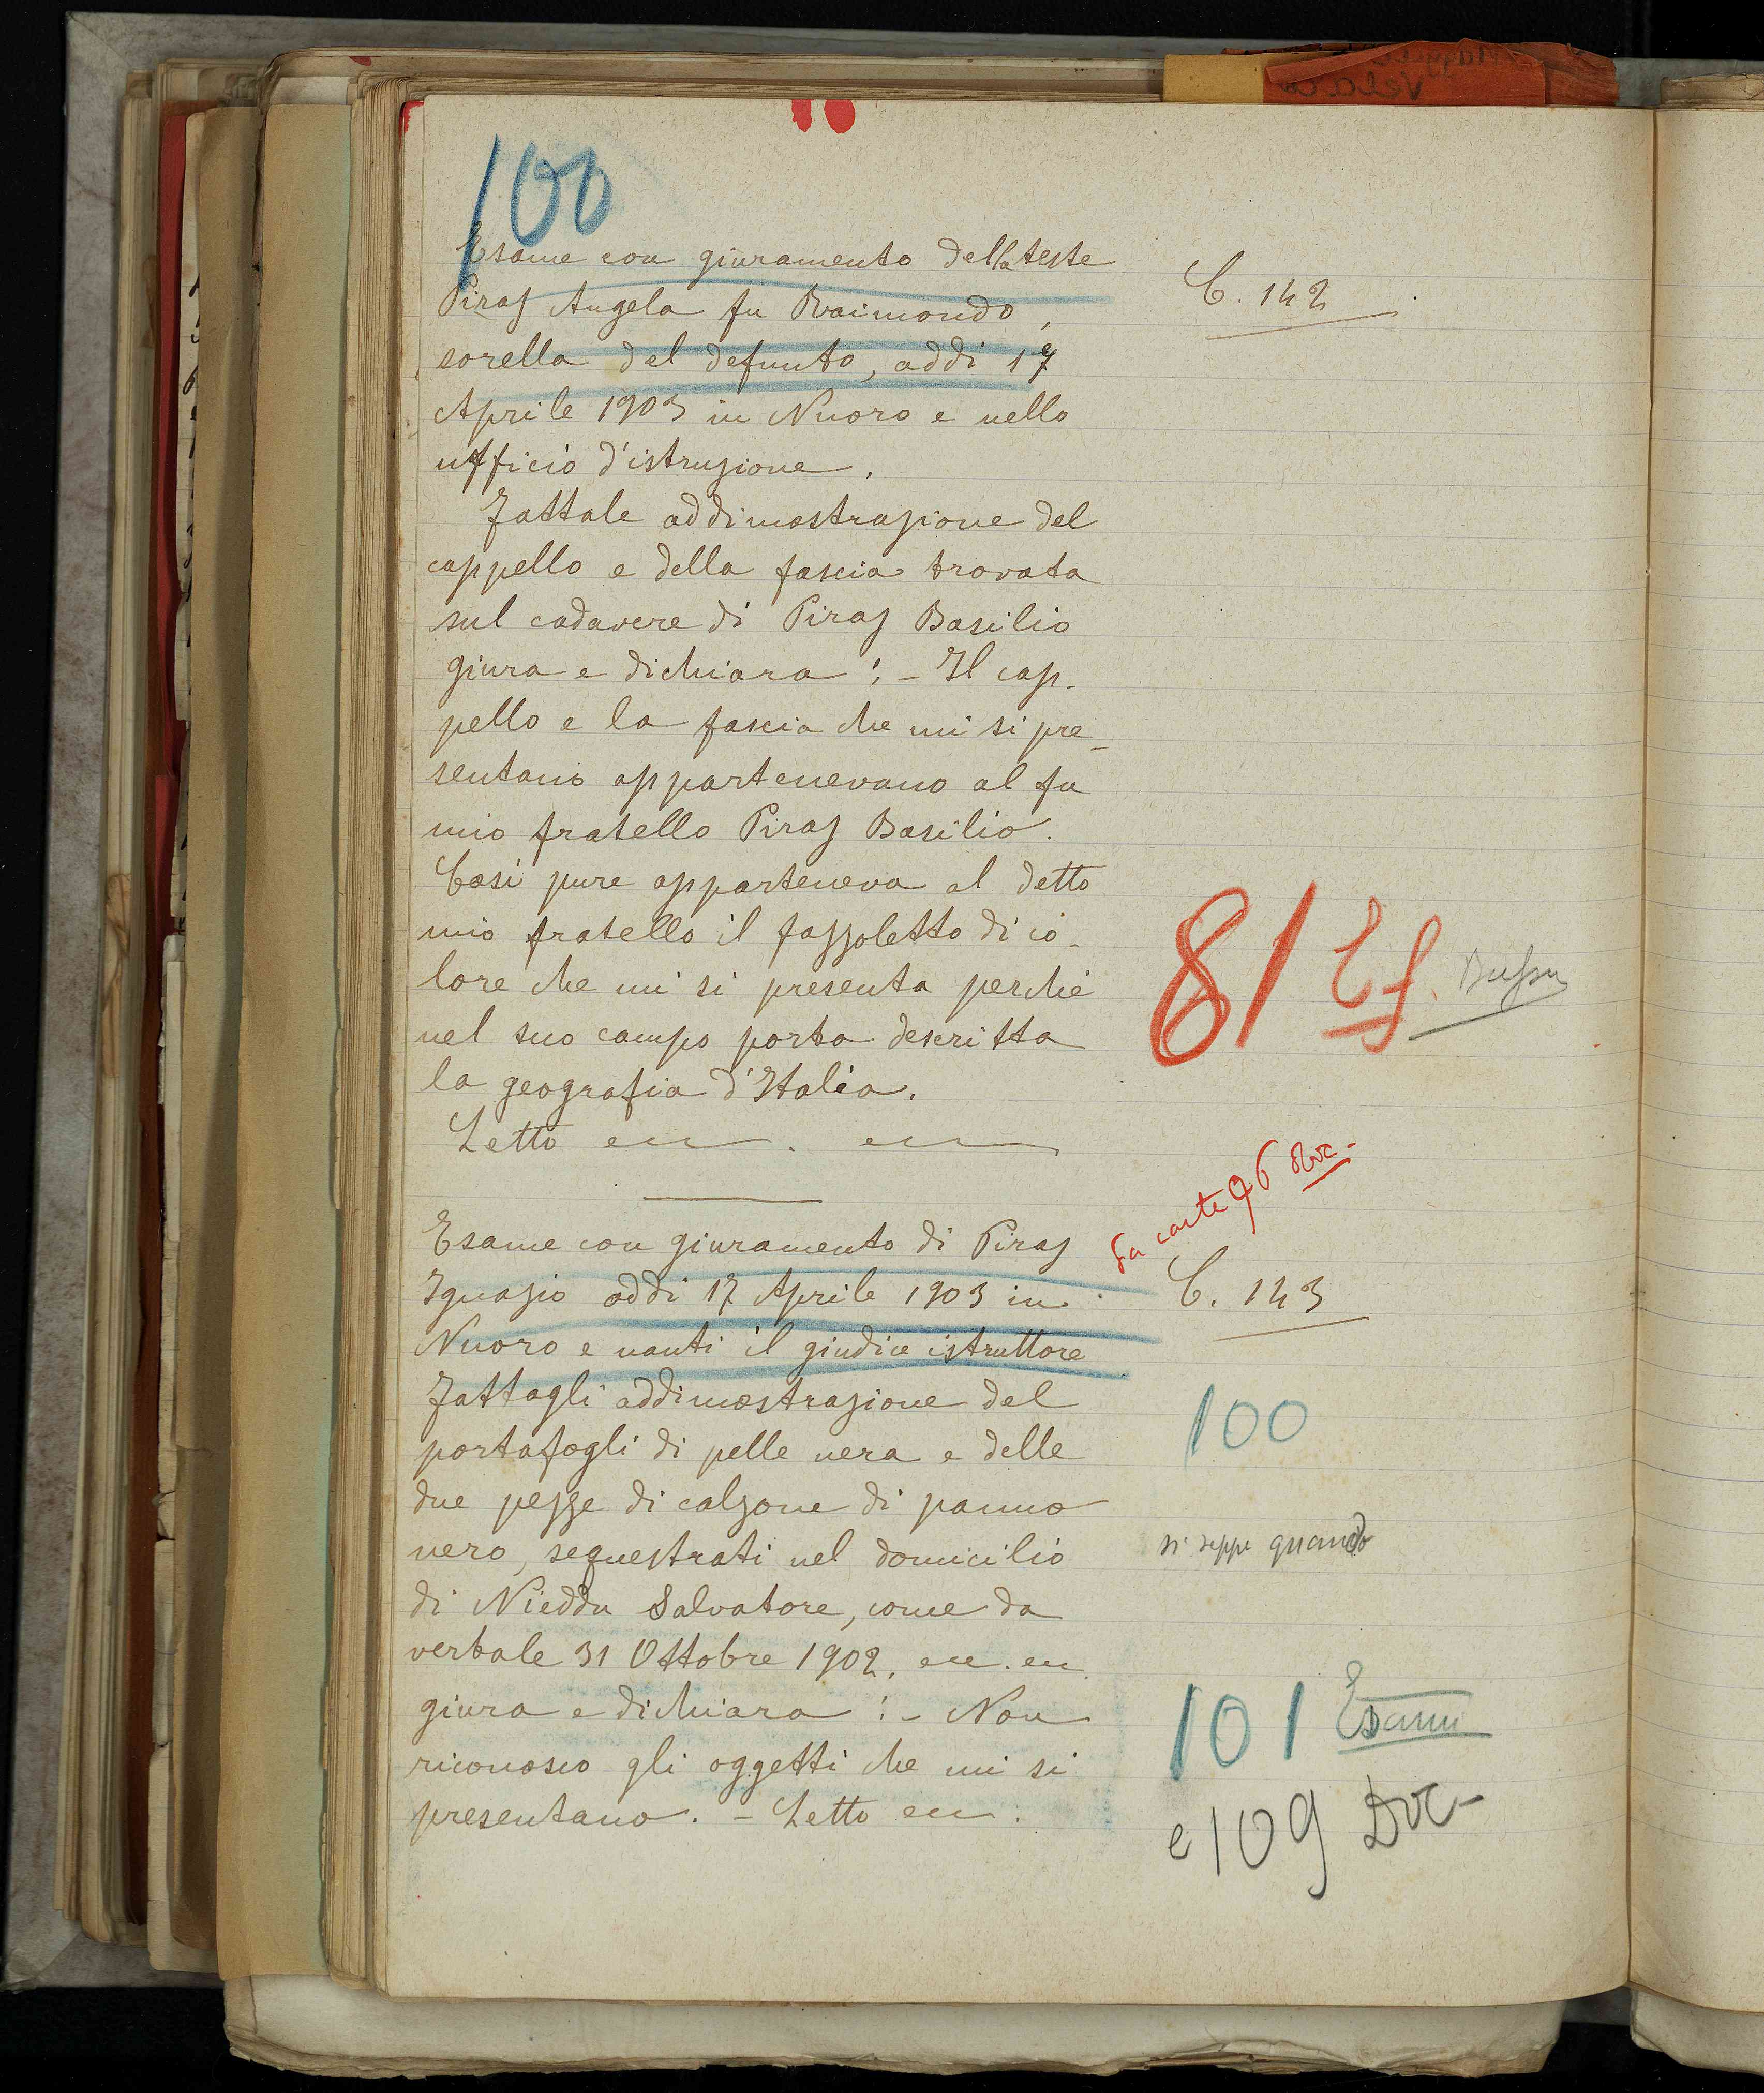 100
Esame con giuramento della teste
Piras Angela fu Raimondo,
sorella del defunto, addi 17
Aprile 1903 in Nuoro e nello
ufficio d'istruzione.
C. 142
Fattale addimostrazione del
cappello e della fascia trovata
sul cadavere di Piras Basilio
giura e dichiara: - Il cap-
pello e la fascia che mi si pre-
sentano appartenevano al fu
mio fratello Piras Basilio.
Così pure apparteneva al detto
mio fratello il fazzoletto di co-
lore che mi si presenta perchè
nel suo campo porta descritta
la geografia d'Italia.
Letto
81 Ef.
Esame con giuramento di Piras
Ignazio addi 17 Aprile 1903 in
Nuoro e nanti il giudice istruttore
Fattagli addimostrazione del
portafogli di pelle nera e delle
due pezze di calzone di panno
nero, sequestrati nel domicilio
di Nieddu Salvatore, come da
verbale 31 Ottobre 1902.
giura e dichiara: - Non
riconosco gli oggetti che mi si
presentano. - Letto
carte 96
C. 143
100
si seppe quando
101 Esami
e 109 Doc-